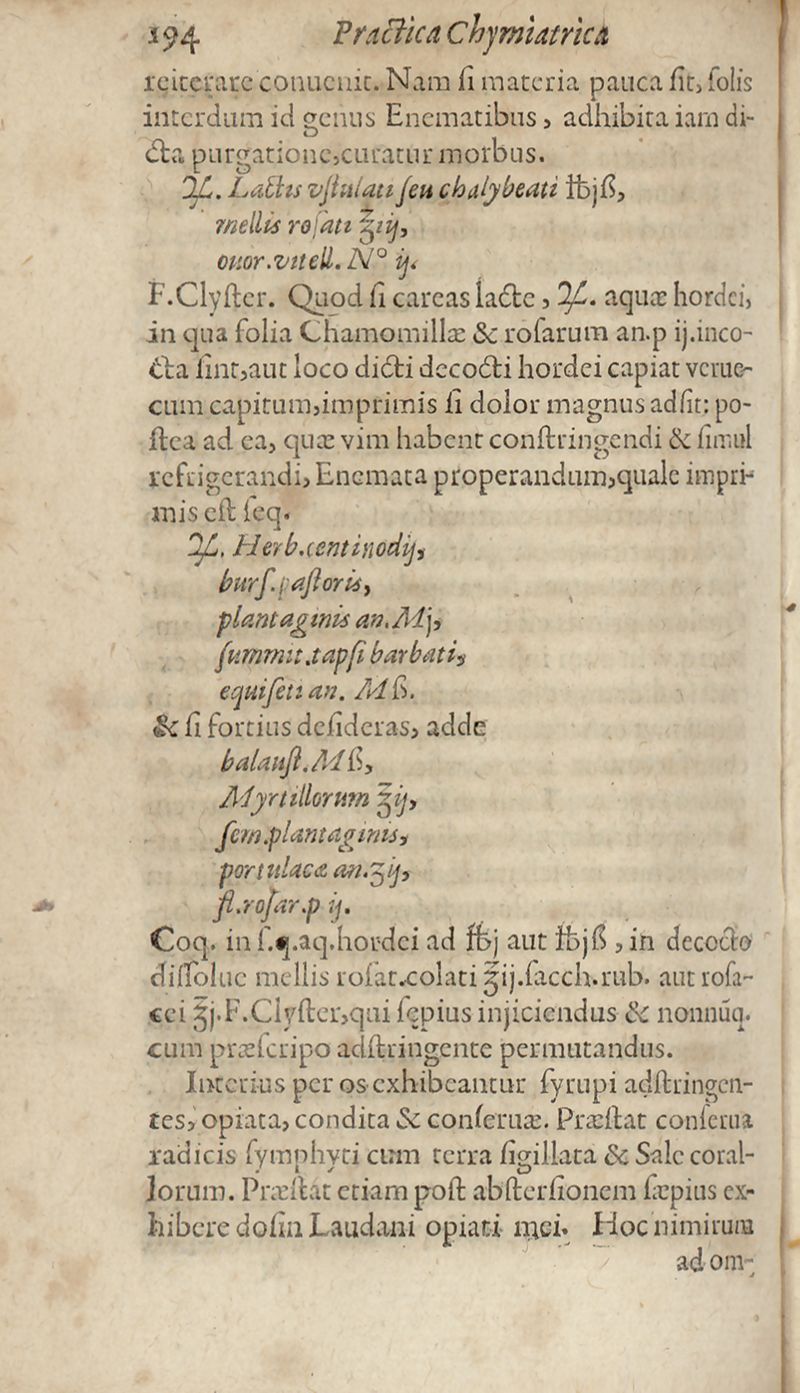 194 Practica Chymiatrica
reiterare conuenit. Nam ſi materia pauca ſit, ſolis
interdum id genus Enematibus, adhibita iam di-
cta purgatione, curatur morbus.
℞. Lactis vſtulati ſeu chalybeati ℔jß,
mellis roſati ℥iij,
ouor. vitell. N° ij.
F. Clyſter. Quod ſi careas lacte, ℞. aquæ hordei,
in qua folia Chamomillæ & roſarum an. p ij. inco-
cta ſint, aut loco dicti decocti hordei capiat verue-
cum capitum, imprimis ſi dolor magnus adſit: po-
ſtea ad ea, quæ vim habent conſtringendi & ſimul
refrigerandi, Enemata properandum, quale impri-
mis eſt ſeq.
℞. Herb. centinodij,
burſ. paſtoris,
plantaginis an. Mj,
ſummit. tapſi barbati,
equiſeti an. Mß.
& ſi fortius deſideras, adde
balauſt. Mß,
Myrtillorum ℥ij,
ſem. plantaginis,
portulacæ an. ʒij,
fl. roſar. p ij.
Coq. in ſ. q. aq. hordei ad ℔j aut ℔jß, in decocto
diſſolue mellis roſat. colati ℥ij. ſacch. rub. aut roſa-
cei ℥j. F. Clyſter, qui ſępius injiciendus & nonnūq.
cum præſcripo adſtringente permutandus.
Interius per os exhibeantur ſyrupi adſtringen-
tes, opiata, condita & conſeruæ. Præſtat conſerua
radicis ſymphyti cum terra ſigillata & Sale coral-
lorum. Præſtat etiam poſt abſterſionem ſæpius ex-
hibere doſin Laudani opiati mei. Hoc nimirum
ad om-